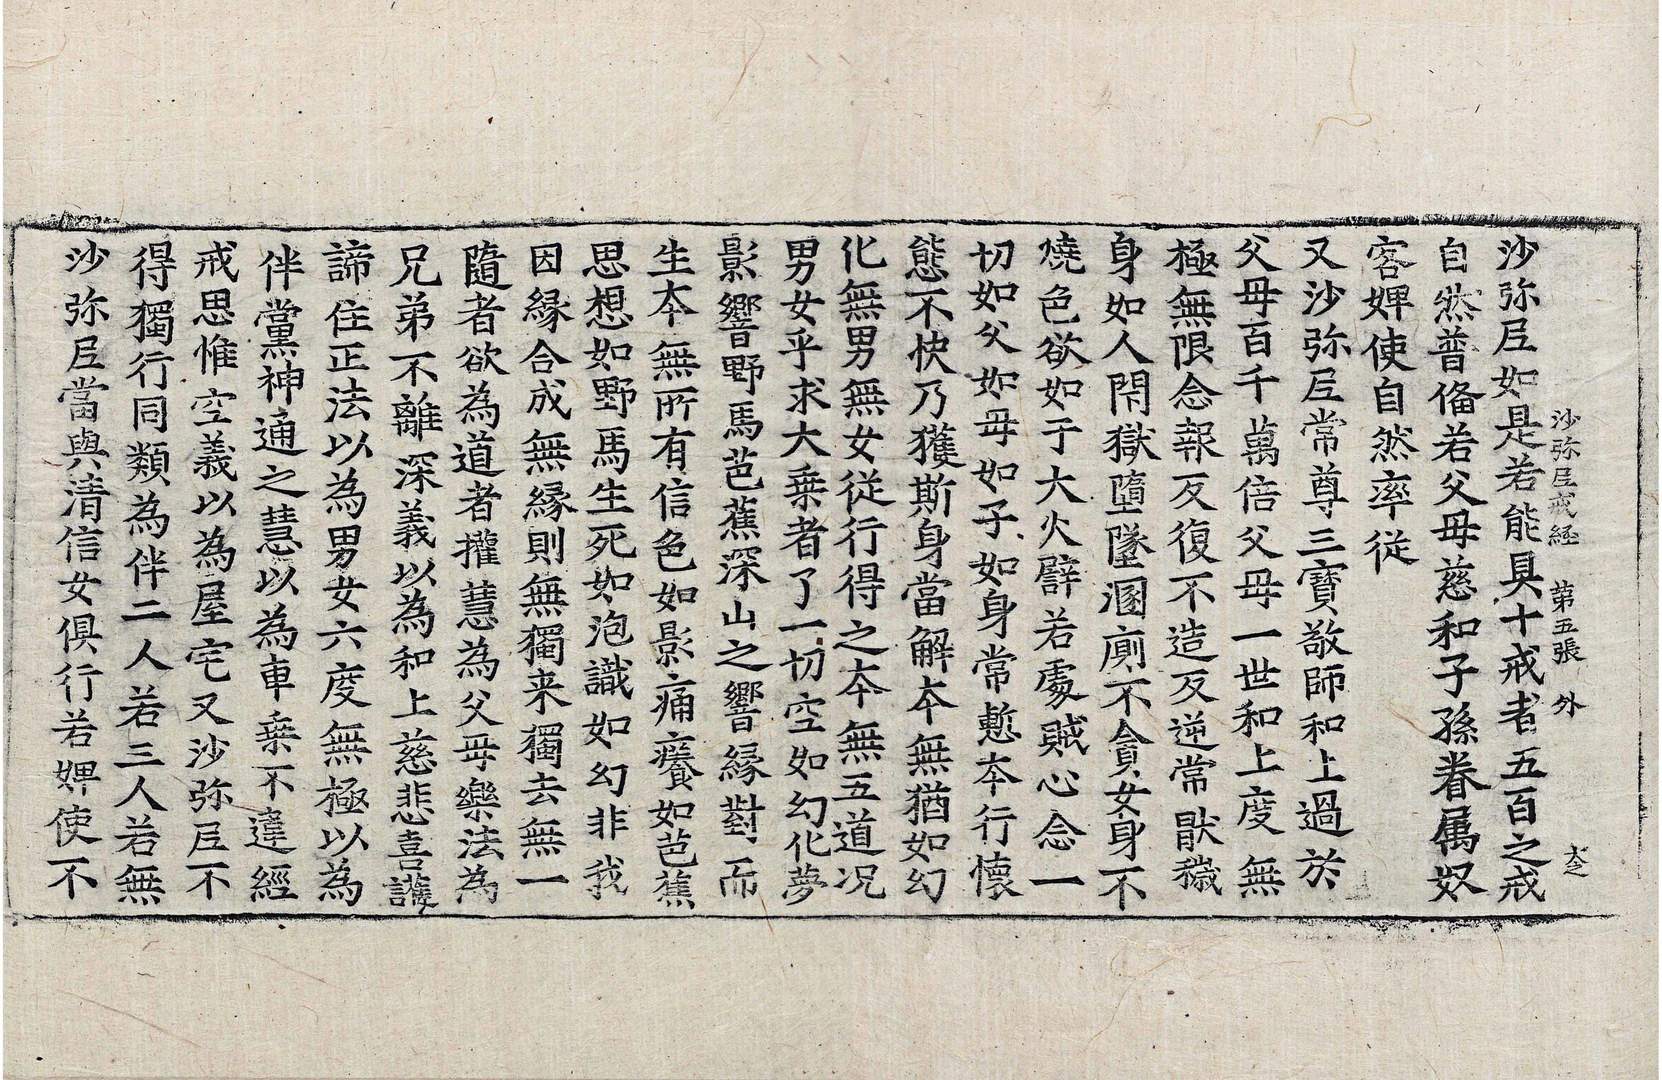 沙弥尼戒経 第五張 外
沙弥尼如是若能具十戒者五百之戒
自然普俻若父母慈和子孫眷属奴
客婢使自然率従
又沙弥尼常尊三寳敬師和上過於
父母百千萬倍父母一世和上度無
極無限念報反復不造反逆常猒穢
身如人閇獄墮墜溷廁不貪女身不
燒色欲如于大火譬若處賊心念一
切如父如母如子如身常慙本行懐
態不快乃獲斯身當解本無猶如幻
化無男無女従行得之本無五道况
男女乎求大乗者了一切空如幻化夢
影響野馬芭蕉深山之響縁對而
生本無所有信色如影痛癢如芭蕉
思想如野馬生死如泡識如幻非我
因縁合成無縁則無獨来獨去無一
隨者欲為道者攉慧為父母樂法為
兄弟不離深義以為和上慈悲喜護
諦住正法以為男女六度無極以為
伴黨神通之慧以為車乗不違經
戒思惟空義以為屋宅又沙弥尼不
得獨行同類為伴二人若三人若無
沙弥尼當與清信女俱行若婢使不